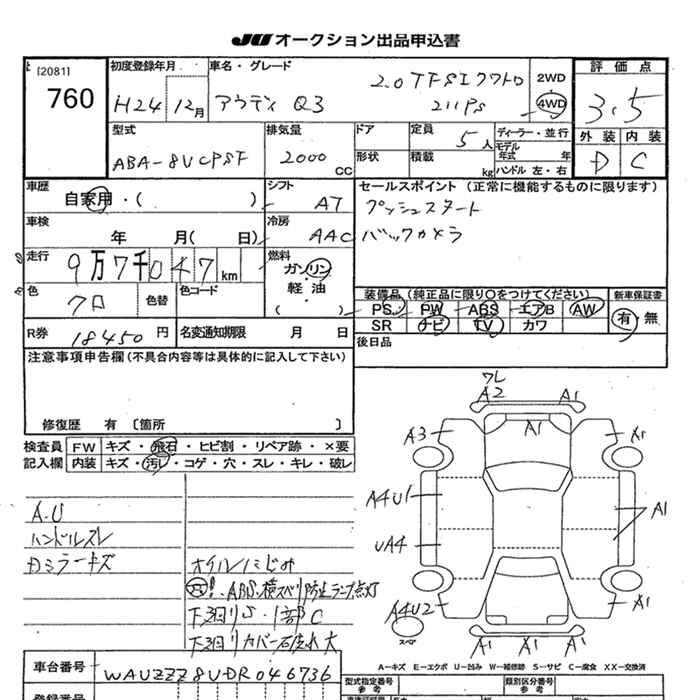 JU オークション出品申込書
[2081]
760
初度登録年月
H24 12月
車名・グレード
2.0 TFSI クワトロ
アウディ Q3 211PS
2WD
4WD
評価点
3.5
外装 内装
D C
型式
ABA-8UCPSF
排気量
2000 CC
ドア
形状
定員 5人
積載 kg
ディーラー・並行
モデル年式 年
ハンドル 左・右
車歴
自家用・( )
シフト
AT
セールスポイント (正常に機能するものに限ります)
プッシュスタート
バックカメラ
車検
年 月( 日)
冷房
AAC
走行
9万7千047km
燃料
ガソリン
軽・油
( )
色
クロ
色替
色コード
装備品 (純正品に限り○をつけてください)
PS PW ABS エアB AW
SR ナビ TV カワ
新車保証書
有・無
R券 18450円
名変通知期限 月 日
後日品
注意事項申告欄 (不具合内容等は具体的に記入して下さい)
修復歴 有 〔箇所 〕
検査員
記入欄
FW キズ・飛石・ヒビ割・リペア跡・×要
内装 キズ・汚レ・コゲ・穴・スレ・キレ・破レ
A.U
ハンドルスレ
Dミラーキズ
オイルにじみ
ABS・横スベリ防止ランプ点灯
下廻りS・1部C
ワレ
A2
A1
A1
A3
A1
A4U1
A1
UA4
A4U2
A1
A1
A1
スペア
A-キズ E-エクボ U-凹み W-補修跡 S-サビ C-腐食 XX-交換済
車台番号
WAUZZZ8UDR046736
型式指定番号
参考
類別区分番号
参考
登録番号